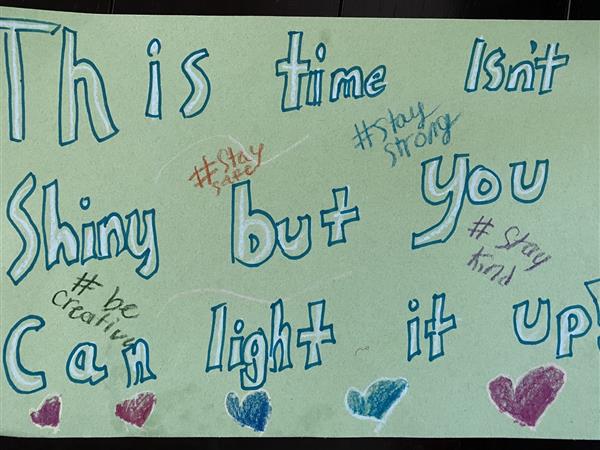 This time Isn't
#stay
strong
#stay
safe
Shiny but you
# stay
kind
# be
creative
Can light it up!